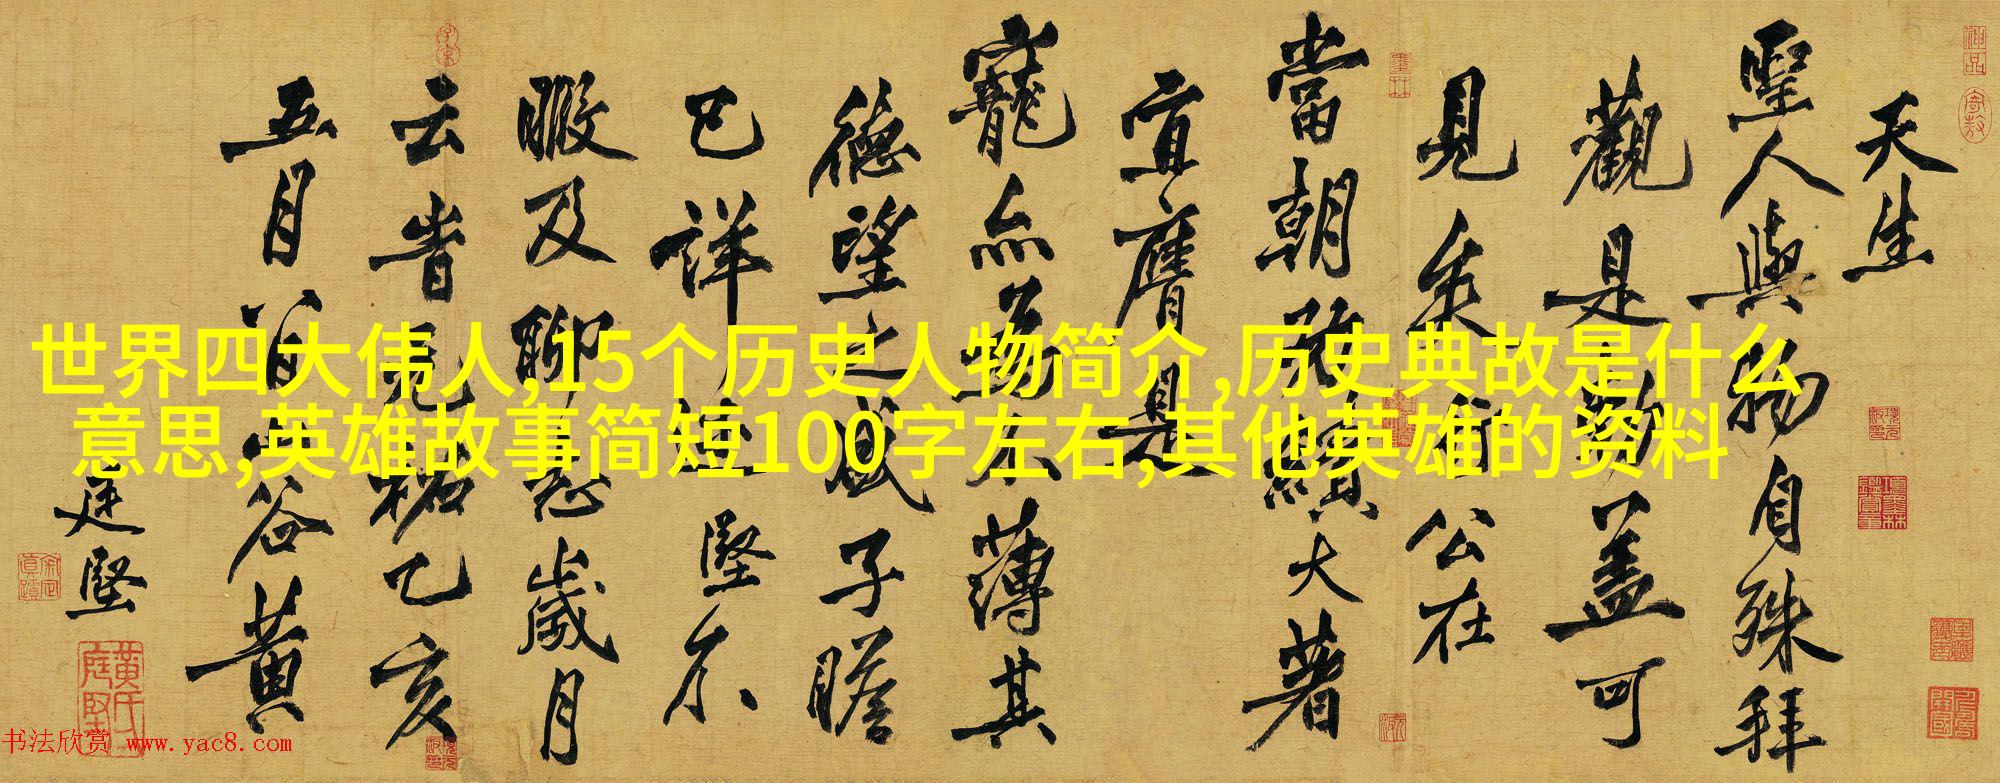 天生
聖人與物自殊拜
觀是蓋可
見矣公在
當朝績大著
宜膺是
寵亦為不薄其
德望之盛子瞻
已詳堅不
暇及聊歲月
云旹元祐乙亥
五月谷黃
庭堅
世界四大伟人,15个历史人物简介,历史典故是什么
意思,英雄故事简短100字左右,其他英雄的资料
书法欣赏 www.yac8.com